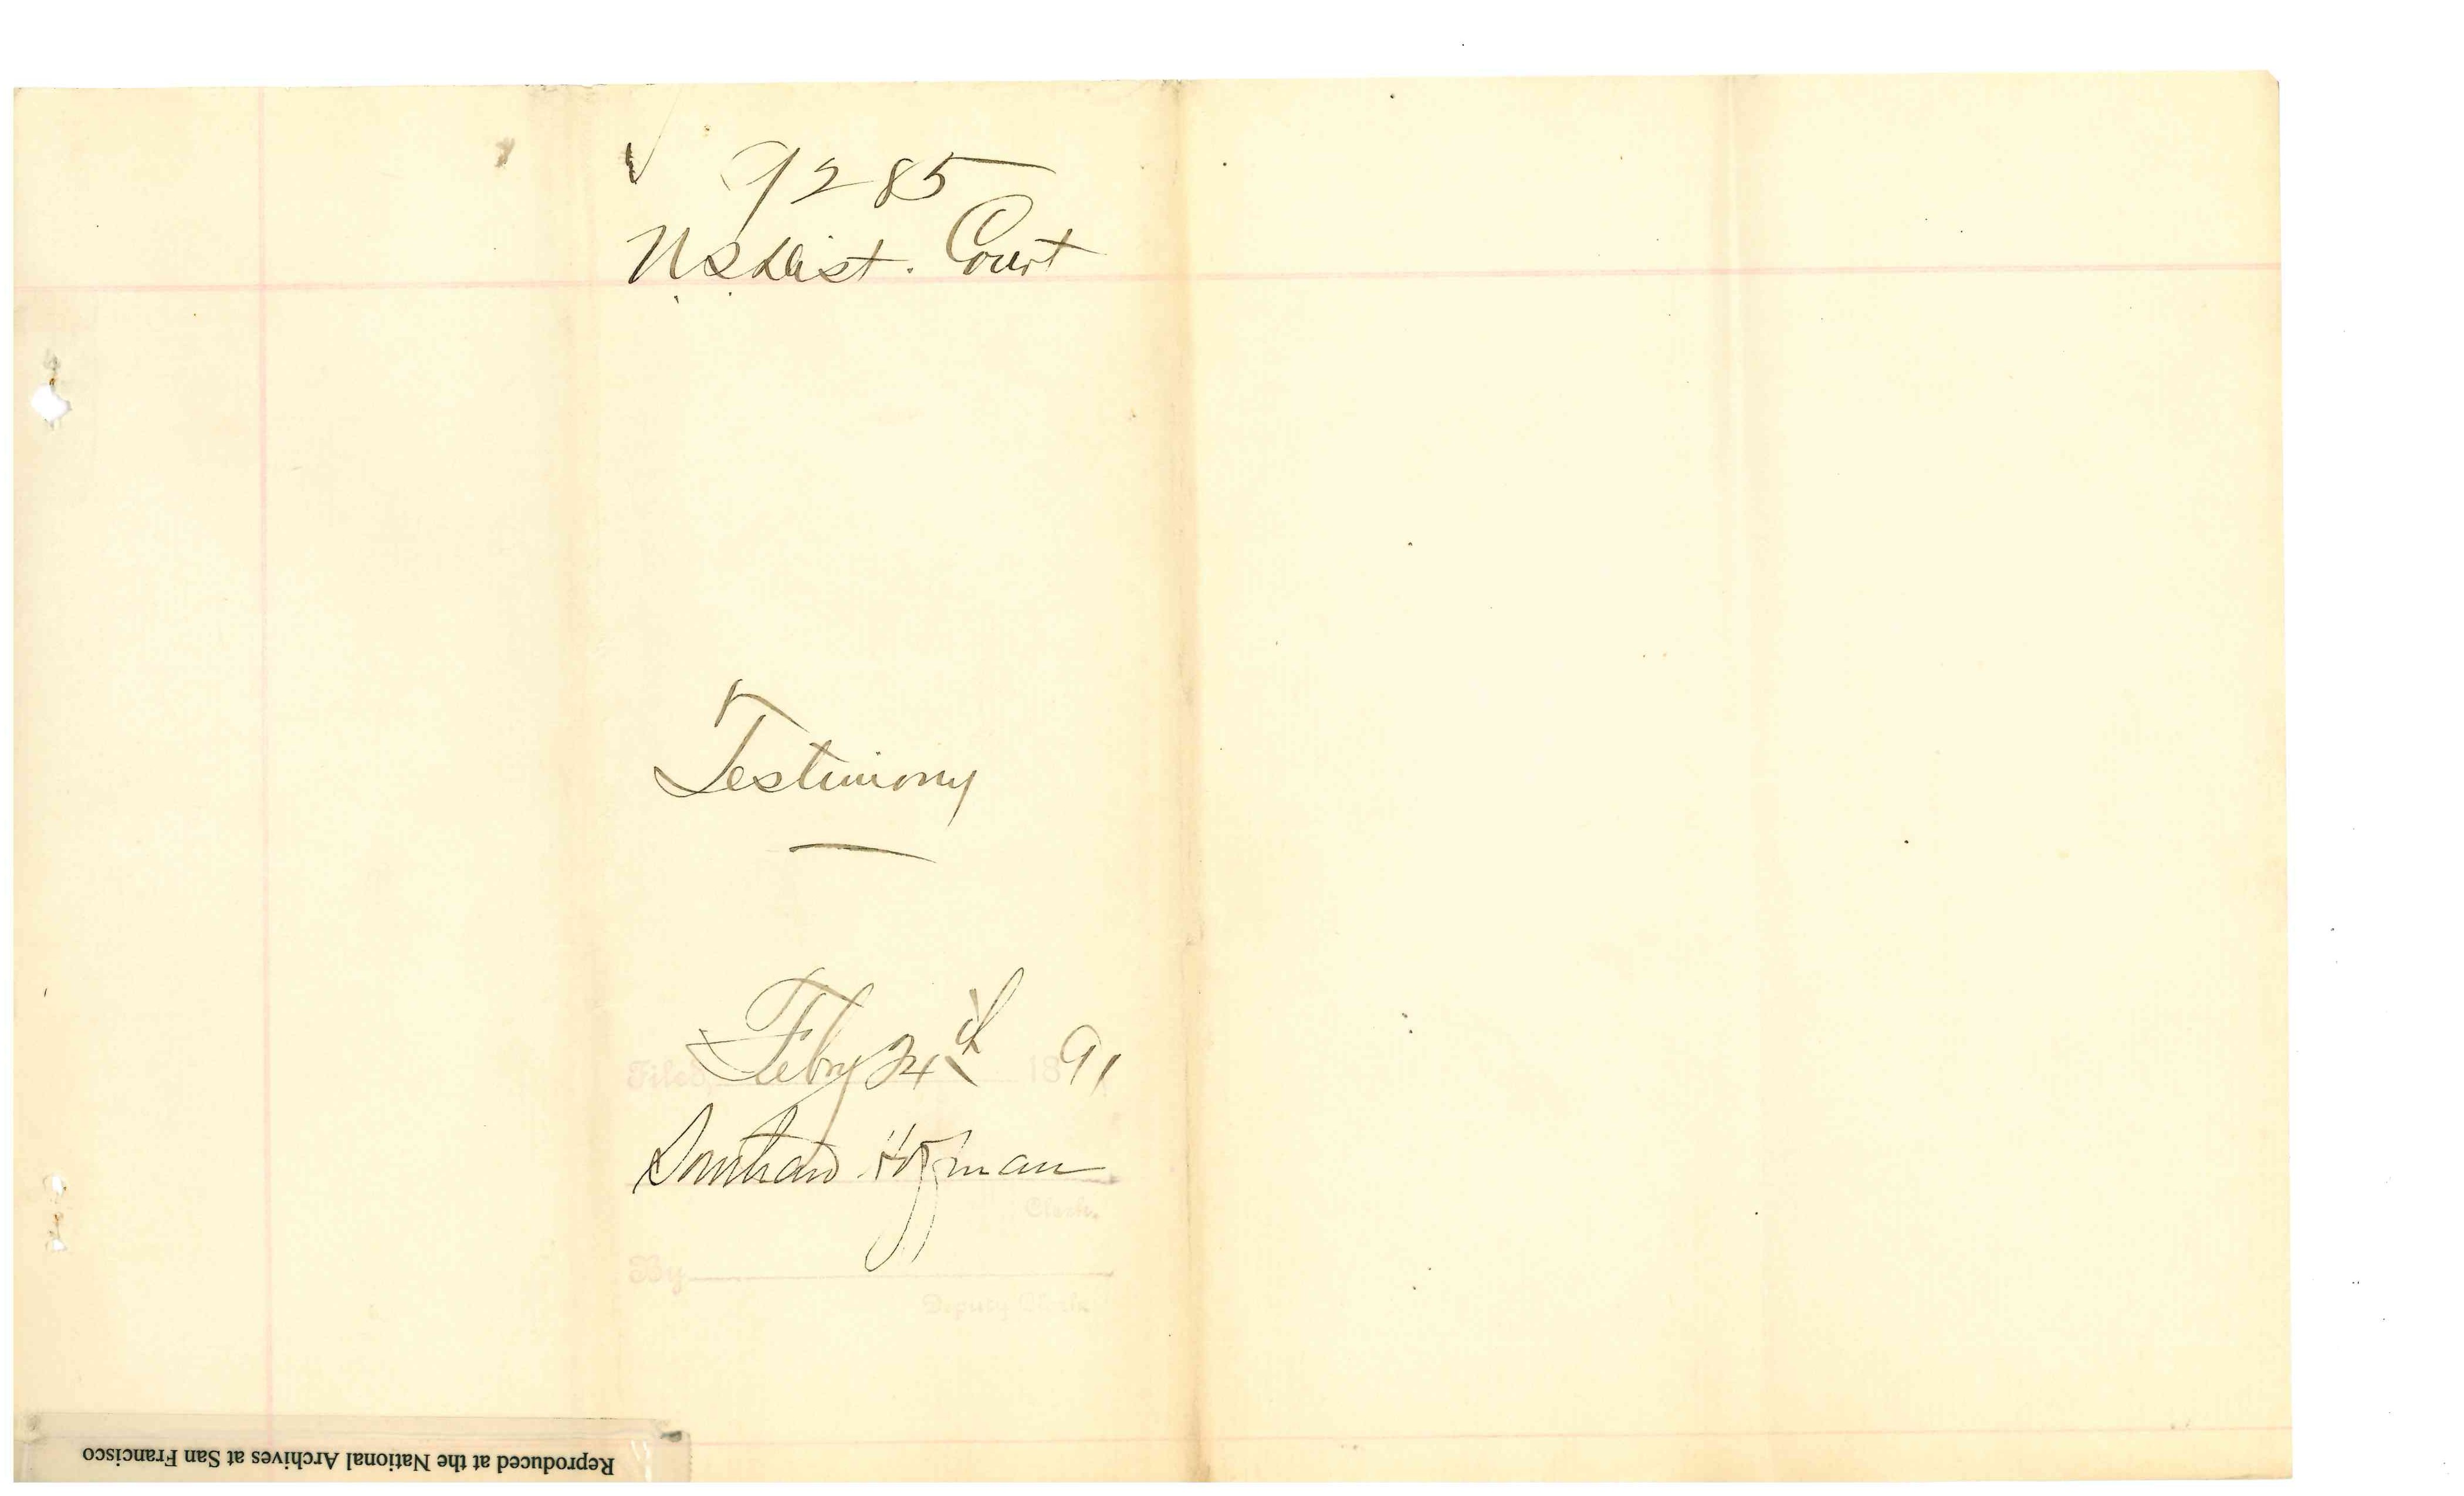 9285
U.S. Dist. Court
Testimony
Filed Feby 24th 1891
Southard Hoffman
Clerk.
By
Deputy Clerk.
Reproduced at the National Archives at San Francisco